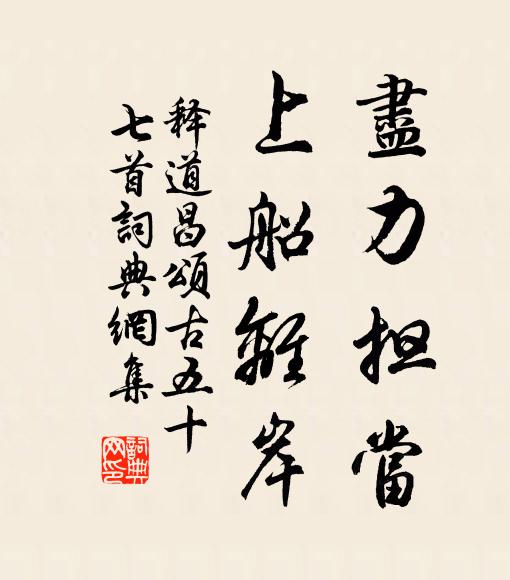 盡力担當
上船離岸
释道昌頌古五十
七首詞典網集
詞典网印